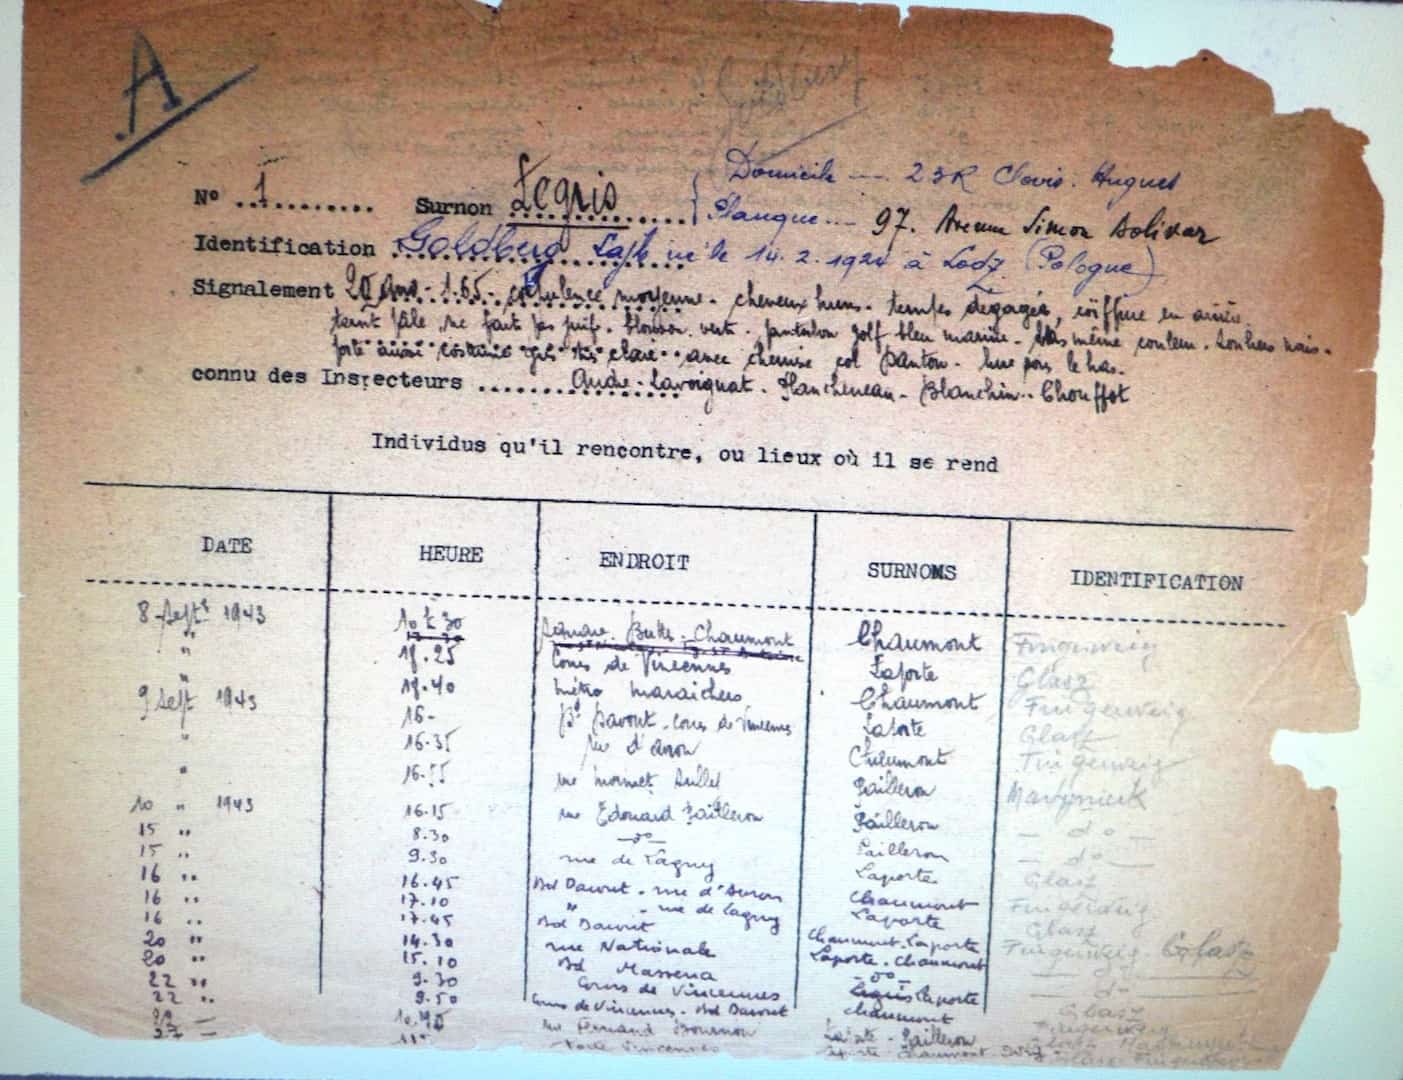 A
N° 1 Surnon Legris Domicile --- 23 R Clovis Hugues
Planque --- 97. Avenue Simon Bolivar
Identification Goldberg né le 14.2.1924 à Lodz (Pologne)
Signalement 20 ans - 1.65 - corpulence moyenne - cheveux bruns - tempes dégagées, coiffure en arrière
teint pâle, ne fait pas juif. blouson vert - pantalon golf bleu marine - bas même couleur. souliers noirs.
porte aussi costume gris très clair avec chemise col Danton
connu des Inspecteurs André - Lavoignat - Plancheneau - Blanchin - Chouffot
Individus qu'il rencontre, ou lieux où il se rend
DATE HEURE ENDROIT SURNOMS IDENTIFICATION
8 Sept 1943 10 h 30 Square Buttes-Chaumont Chaumont Fingerweig
" 18.25 Cours de Vincennes Laporte Glasz
" 18.40 métro maraichers Chaumont Fingerweig
9 Sept 1943 16- Bd Davout - Cours de Vincennes Laporte Glasz
" 16.35 rue d'avron Chaumont Fingerweig
" 16.55 rue Pailleron
10 " 1943 16.15 rue Edouard Pailleron Pailleron - do -
15 " 8.30 - do - Pailleron - do -
15 " 9.30 rue de Lagny Laporte Glasz
16 " 16.45 Bd Davout - rue d'Avron Chaumont Fingerweig
16 " 17.10 " - rue de Lagny Laporte Glasz
16 " 17.45 Bd Davout Chaumont-Laporte Fingerweig-Glasz
20 " 14.30 rue Nationale Laporte-Chaumont - do -
20 " 15.10 Bd Massena - do - - do -
22 " 9.30 Cours de Vincennes Laporte Glasz
22 " 9.50 Cours de Vincennes - Bd Davout Chaumont Fingerweig
rue Fernand Pailleron
27 Porte Vincennes Chaumont